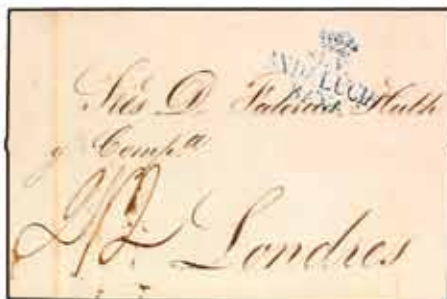 ANDALUCIA
Sres D. Federico Huth
y Compª
2/2 Londres